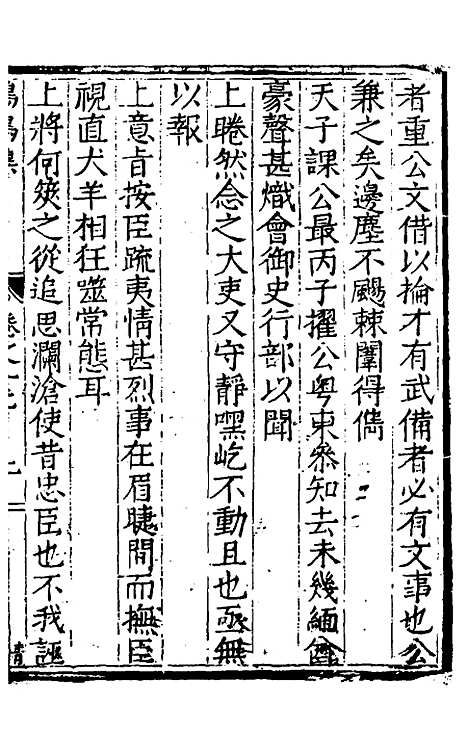 者重公文借以掄才有武備者必有文事也公
兼之矣邊塵不颺棘闈得儁
天子課公最丙子擢公粵東叅知去未幾緬酋
豪聲甚熾會御史行部以聞
上睠然念之大吏又守靜嘿屹不動且也亟無
以報
上意旨按臣疏夷情甚烈事在眉睫間而撫臣
視直犬羊相狂噬常態耳
上將何筴之從追思瀾滄使昔忠臣也不我誣